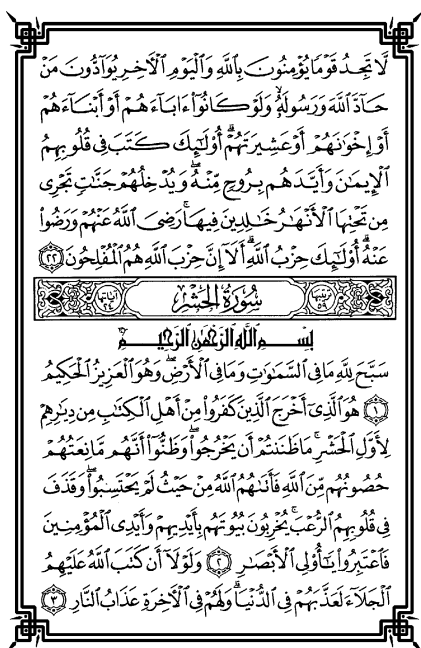 لَّا تَجِدُ قَوْمًا يُؤْمِنُونَ بِاللَّهِ وَالْيَوْمِ الْآخِرِ يُوَآدُّونَ مَنْ
حَآدَّ اللَّهَ وَرَسُولَهُۥ وَلَوْ كَانُوٓا۟ ءَابَآءَهُمْ أَوْ أَبْنَآءَهُمْ
أَوْ إِخْوَٰنَهُمْ أَوْ عَشِيرَتَهُمْ ۚ أُو۟لَٰٓئِكَ كَتَبَ فِى قُلُوبِهِمُ
الْإِيمَٰنَ وَأَيَّدَهُم بِرُوحٍ مِّنْهُ ۖ وَيُدْخِلُهُمْ جَنَّٰتٍ تَجْرِى
مِن تَحْتِهَا الْأَنْهَٰرُ خَٰلِدِينَ فِيهَا ۚ رَضِىَ اللَّهُ عَنْهُمْ وَرَضُوا۟
عَنْهُ ۚ أُو۟لَٰٓئِكَ حِزْبُ اللَّهِ ۚ أَلَآ إِنَّ حِزْبَ اللَّهِ هُمُ الْمُفْلِحُونَ ٢٢
ترتيبها ٥٩ سُورَةُ الحَشْرِ آياتها ٢٤
بِسْمِ اللَّهِ الرَّحْمَٰنِ الرَّحِيمِ
سَبَّحَ لِلَّهِ مَا فِى السَّمَٰوَٰتِ وَمَا فِى الْأَرْضِ ۖ وَهُوَ الْعَزِيزُ الْحَكِيمُ
١ هُوَ الَّذِىٓ أَخْرَجَ الَّذِينَ كَفَرُوا۟ مِنْ أَهْلِ الْكِتَٰبِ مِن دِيَٰرِهِمْ
لِأَوَّلِ الْحَشْرِ ۚ مَا ظَنَنتُمْ أَن يَخْرُجُوا۟ ۖ وَظَنُّوٓا۟ أَنَّهُم مَّانِعَتُهُمْ
حُصُونُهُم مِّنَ اللَّهِ فَأَتَىٰهُمُ اللَّهُ مِنْ حَيْثُ لَمْ يَحْتَسِبُوا۟ ۖ وَقَذَفَ
فِى قُلُوبِهِمُ الرُّعْبَ ۚ يُخْرِبُونَ بُيُوتَهُم بِأَيْدِيهِمْ وَأَيْدِى الْمُؤْمِنِينَ
فَاعْتَبِرُوا۟ يَٰٓأُو۟لِى الْأَبْصَٰرِ ٢ وَلَوْلَآ أَن كَتَبَ اللَّهُ عَلَيْهِمُ
الْجَلَآءَ لَعَذَّبَهُمْ فِى الدُّنْيَا ۖ وَلَهُمْ فِى الْآخِرَةِ عَذَابُ النَّارِ ٣